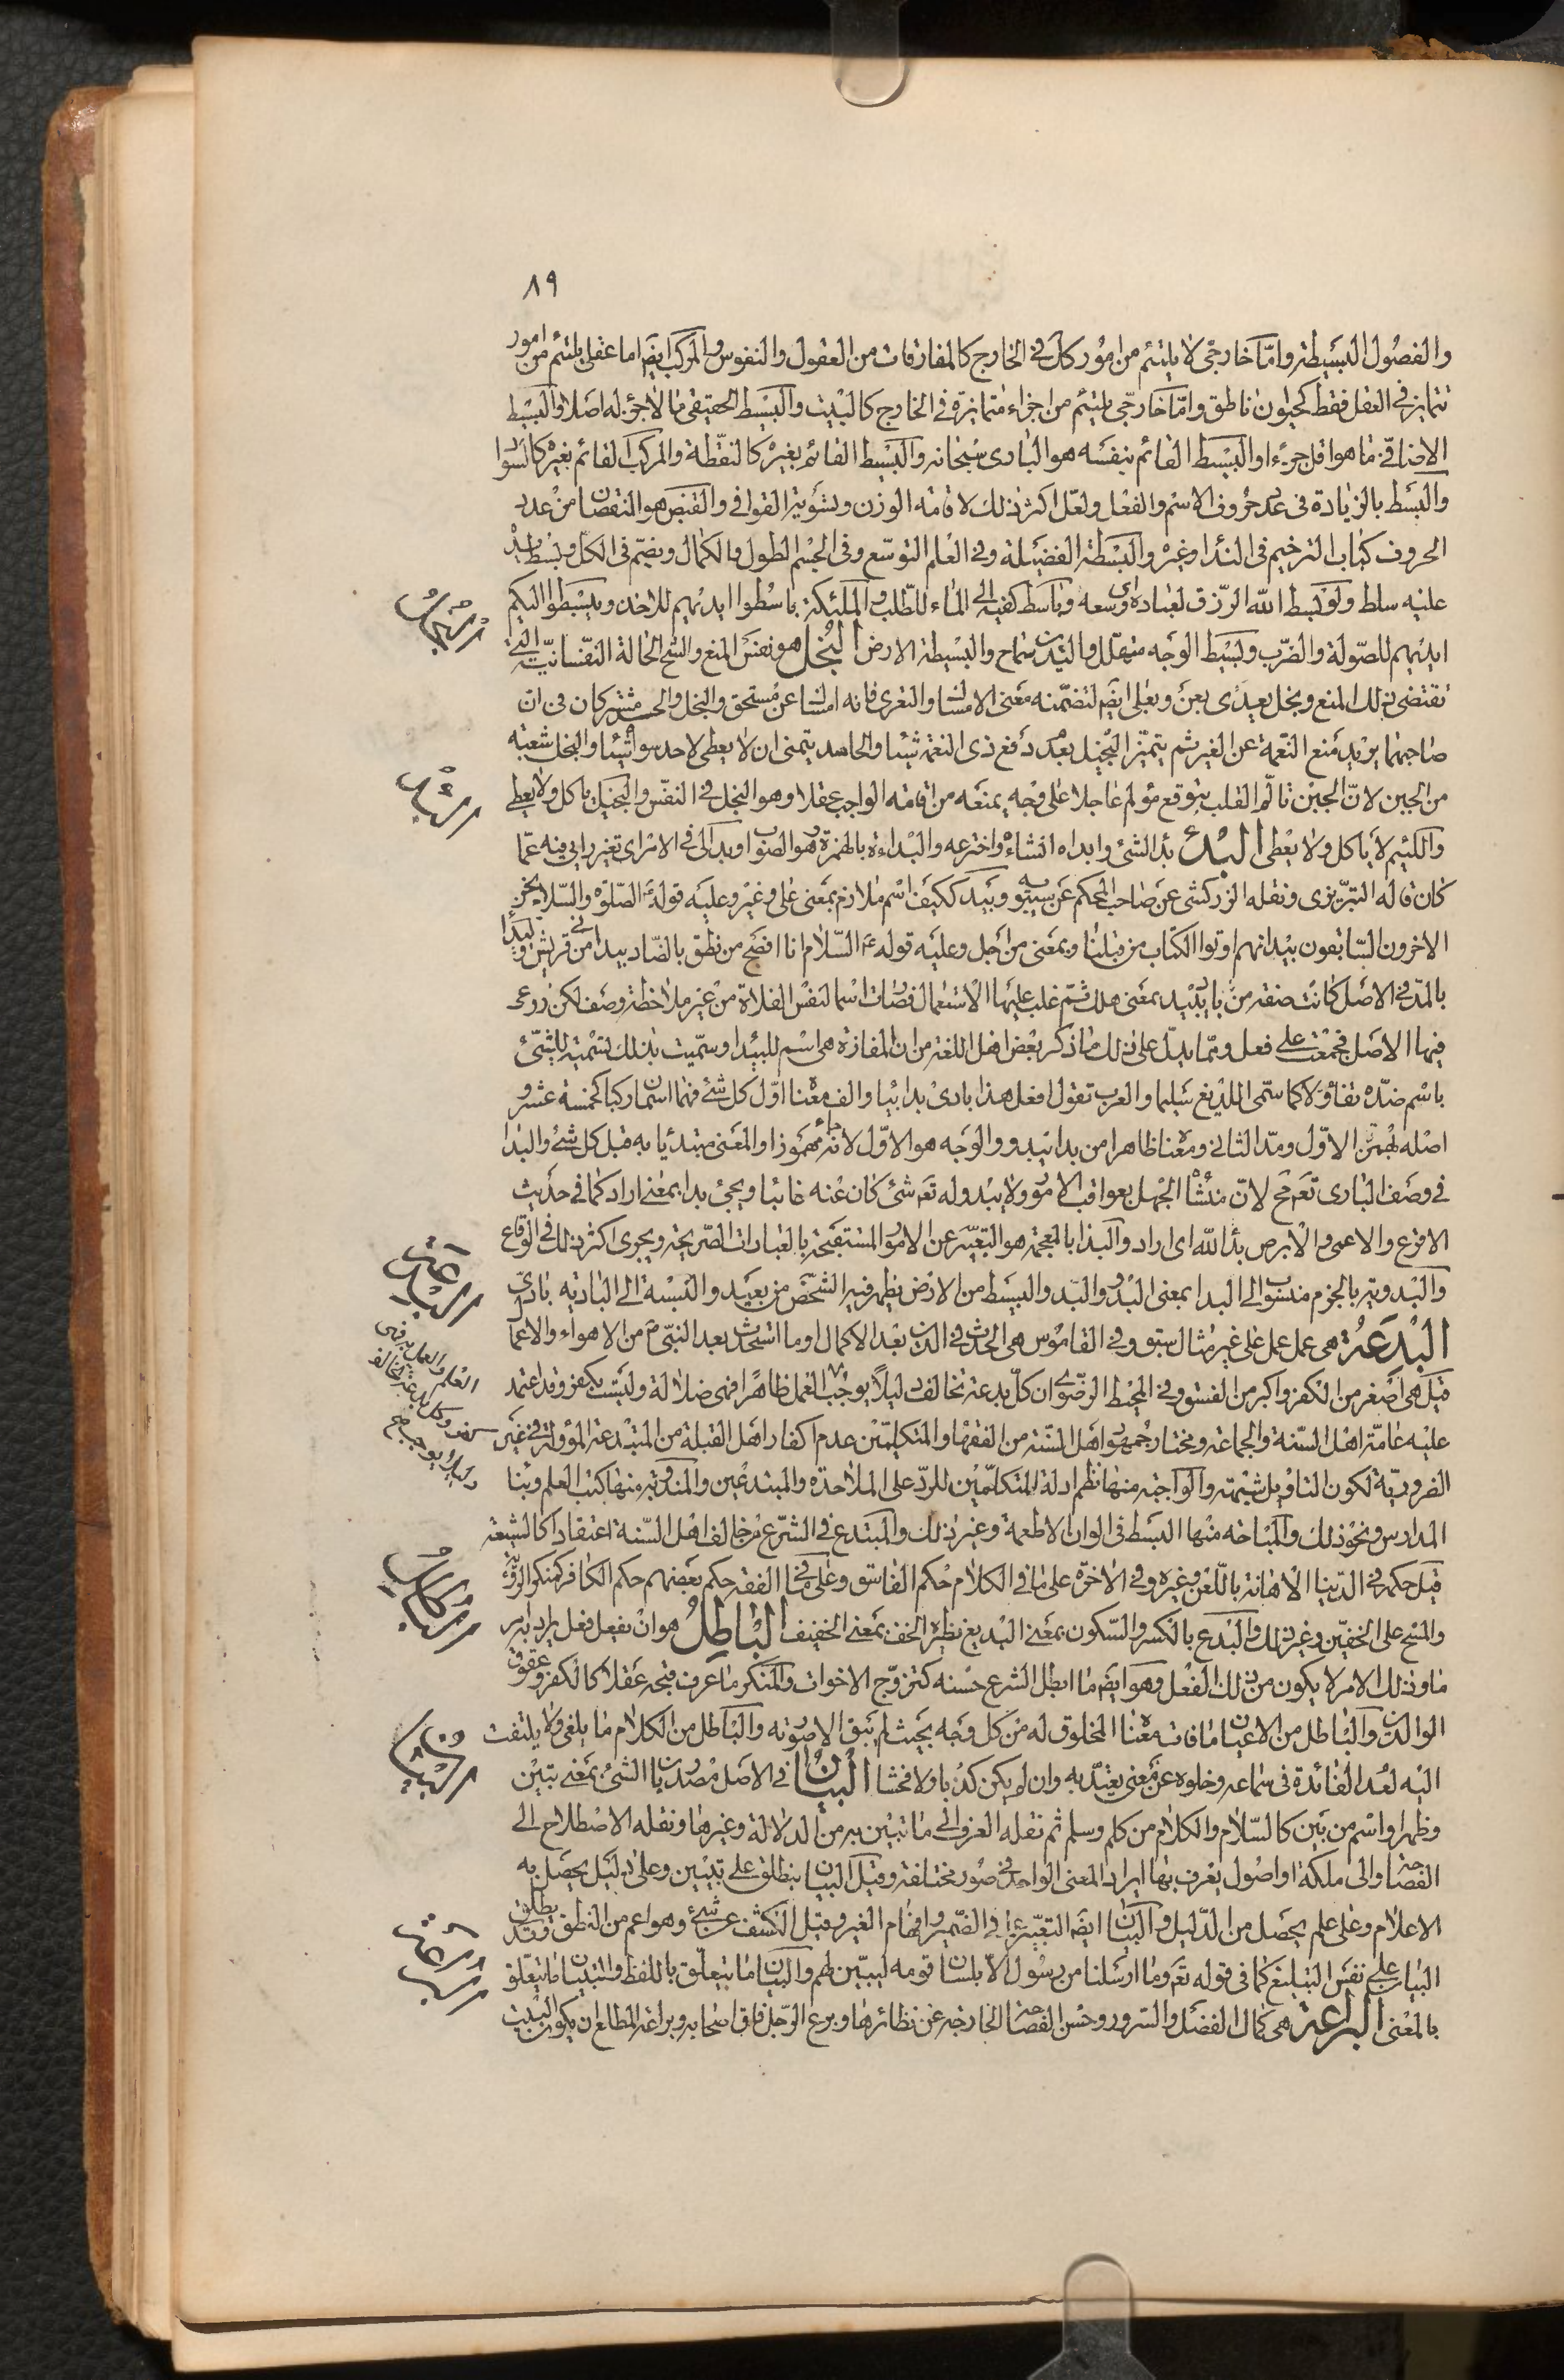 ٨٩
والفصول البسيطة واما خارجى لا يلتئم من امور كل فى الخارج كالمفارقات من العقول والنفوس والمركب ايضا اما عقلى يلتئم من امور
تتمايز فى العقل فقط كحيوان ناطق واما خارجى يلتئم من اجزاء متمايزة فى الخارج كالبيت والبسيط الحقيقى ما لا جزء له اصلا والبسيط
الاضافى ما هو اقل جزءا والبسيط القائم بنفسه هو البارى سبحانه والبسيط القائم بغيره كالنقطة والمركب القائم بغيره كالسواد
والبسط بالزيادة فى عدد حروف الاسم والفعل ولعل اكثر ذلك لاقامة الوزن وتسوية القوافى والقبض هو النقصان من عدد
الحروف كباب الترخيم فى النداء وغيره والبسطة الفضيلة وفى العلم التوسع وفى الجسم الطول والكمال ويضم فى الكل وبسط يده
عليه سلط ولو بسط الله الرزق لعباده اى وسعه وباسط كفيه الى الماء للطلب والملئكة باسطوا ايديهم للاخذ ويبسطوا اليكم
ايديهم للصولة والضرب وبسيط الوجه متهلل واليدين سماح والبسيطة الارض البخل هو نفس المنع والشح الحالة النفسانية التى
تقتضى ذلك المنع وبخل يعدى بعن وبعلى ايضا لتضمنه معنى الامساك والتعدى فانه امساك عن مستحق والبخل والحسد مشتركان فى ان
صاحبهما يريد منع النعمة عن الغير ثم يتميز البخيل بعدم دفع ذى النعمة شيئا والحاسد يتمنى ان لا يعطى لاحد سواه شيئا والبخل شعبة
من الجبن لان الجبن تألم القلب بتوقع مؤلم عاجلا على وجه يمنعه من اقامة الواجب عقلا وهو البخل فى النفس والبخيل ياكل ولا يعطى
واللئيم لا ياكل ولا يعطى البدء بدأ الشئ وابداه انشاءه واخترعه والبداءة بالهمزة وهو الصواب وبدا لى فى الامر اى تغير رايى فيه عما
كان قاله التبريزى ونقله الزركشى عن صاحب المحكم عن سيبويه وبيد ككيف اسم ملازم بمعنى على وغير وعليه قوله عليه الصلوة والسلام نحن
الاخرون السابقون بيد انهم اوتوا الكتاب من قبلنا وبمعنى من اجل وعليه قوله عم السلام انا افصح من نطق بالضاد بيد انى من قريش والبيداء
بالمد فى الاصل كانت صفة من باد يبيد بمعنى هلك ثم غلب عليها الاستعمال فصارت اسما لنفس الفلاة من غير ملاحظة وصف لكن روعى
فيها الاصل فجمعت على فعل ومما يدل على ذلك ما ذكر بعض اهل اللغة من ان المفازة هى اسم للبيداء وسميت بذلك تسمية للشئ
باسم ضده تفاؤلا كما سمى اللديغ سليما والعرب تقول افعل هذا بادى بدا بيا والف معناه اول كل شئ فهما اسمان ركبا كخمسة عشر و
اصله بهمز الاول ومد الثانى ومعناه ظاهرا من بدا يبدو والوجه هو الاول لانه جاء مهموزا والمعنى مبتدئا به قبل كل شئ والبدا
فى وصف البارى تعم مح لان منشأ الجهل بعواقب الامور ولا يبدو له تعم شئ كان عنه غائبا ويجئ بدا بمعنى اراد كما فى حديث
الاقرع والاعمى والابرص بدأ لله اى اراد والبذا بالمعجمة هو التعبير عن الامور المستقبحة بالعبارات الصريحة ويجرى اكثر ذلك فى الوقاع
والبدوية بالجزم منسوب الى البدا بمعنى البدو والبدو والبسيط من الارض يظهر فيه الشخص من بعيد والنسبة الى البادية بادى
البدعة هى عمل عمل على غير مثال سبق وفى القاموس هى الحدث فى الدين بعد الاكمال او ما استحدث بعد النبى من الاهواء والاعمال
قيل هى اصغر من الكفر واكبر من الفسق وفى المحيط الرضوى ان كل بدعة تخالف دليلا يوجب العمل ظاهرا فهى ضلالة وليست بكفر وقد اعتمد
عليه عامة اهل السنة والجماعة ومختار جمهور اهل السنة من الفقهاء والمتكلمين عدم اكفار اهل القبلة من المبتدعة المؤولة فى غير
الضرورية لكون التاويل شبهة والواجبة منها نظم ادلة المتكلمين للرد على الملاحدة والمبتدعين والمندوبة منها كتب العلم وبناء
المدارس ونحو ذلك والمباحة منها البسط فى الوان الاطعمة وغير ذلك والمبتدع فى الشرع من خالف اهل السنة اعتقادا كالشيعة
قيل حكمه فى الدنيا الاهانة باللعن وغيره وفى الاخرة على ما فى الكلام حكم الفاسق وعلى ما فى الفقه حكم بعضهم حكم الكافر كمنكر الرؤية
والمسح على الخفين وغير ذلك والبدع بالكسر والسكون بمعنى البديع نظيره الخف بمعنى الخفيف الباطل هو ان يفعل فعل يراد به امر
ما وذلك الامر لا يكون من ذلك الفعل وهو ايضا ما ابطل الشرع حسنه كتزوج الاخوات والمنكر ما عرف قبحه عقلا كالكفر وعقوق
الوالدين والباطل من الاعيان ما فات معناه المخلوق له من كل وجه بحيث لم يبق الا صورته والباطل من الكلام ما يلغى ولا يلتفت
اليه لعدم الفائدة فى سماعه وخلوه عن معنى يعتد به وان لم يكن كذبا ولا فحشا البيان فى الاصل مصدر بان الشئ بمعنى تبين
وظهر او اسم من بين كالسلام والكلام من كلم وسلم ثم نقله العرف الى ما تبين به من الدلالة وغيرها ونقله الاصطلاح الى
الفصاحة والى ملكة او اصول يعرف بها ايراد المعنى الواحد فى صور مختلفة وقيل البيان ينطلق على تبيين وعلى دليل يحصل به
الاعلام وعلى علم يحصل من الدليل والبيان ايضا التعبير عما فى الضمير وافهام الغير وقيل الكشف عن شئ وهو اعم من النطق وقد يطلق
البيان على نفس التبليغ كما فى قوله تعم وما ارسلنا من رسول الا بلسان قومه ليبين لهم والبيان ما يتعلق باللفظ والتبيان ما يتعلق
بالمعنى البراعة هى كمال الفضل والسرور وحسن الفصاحة الخارجة عن نظائرها وبرع الرجل فاق اصحابه وبراعة المطلع ان يكون البيت
البخل
البدء
البدعة
العلم والعمل به فهى
كفر وكل بدعة تخالف
دليلا يوجب
الباطل
البيان
البراعة